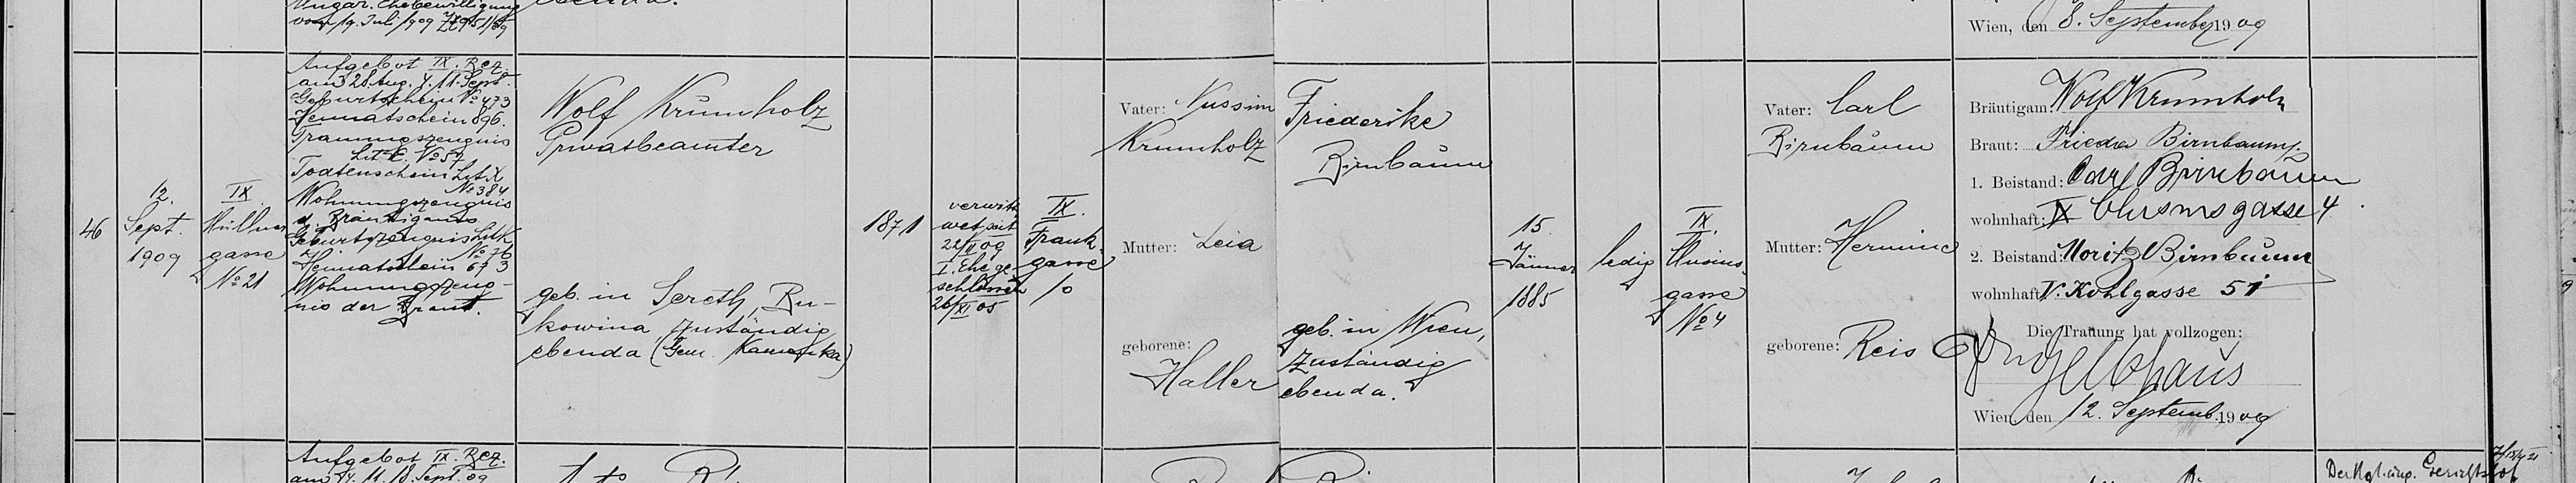 Ungar. Ehebewilligung
vom 19. Juli 1909
ebenda.
Wien, den 8. September 1909
46
12.
Sept.
1909
IX.
Müllner
gasse
No 21
Aufgebot IX. Bez.
am 28 Aug. 4. 11. Sept.
Geburtsschein No 473
Heimatschein 896.
Trauungszeugnis
Lit E. No 57
Todtenschein Lit X
No 384
Wohnungszeugnis
d. Bräutigams
Geburtszeugnis Lit K
No 76
Heimatschein 673
Wohnungszeug-
nis der Braut.
Wolf Krumholz
Privatbeamter
geb. in Sereth, Bu-
kowina zuständig
ebenda (Gem. Kamenka)
1871
verwit
wet seit
22/II 09
I. Ehe ge
schlossen
26/XI 05
IX.
Frank
gasse
10
Vater: Nussim
Krumholz
Mutter: Leia
geborene:
Haller
Friederike
Birnbaum
geb. in Wien,
zuständig
ebenda.
15.
Jänner
1885
ledig
IX.
Clusius-
gasse
No 4
Vater: Carl
Birnbaum
Mutter: Hermine
geborene: Reis
Bräutigam: Wolf Krumholz
Braut: Frieda Birnbaum
1. Beistand: Carl Birnbaum
wohnhaft: IX Clusiusgasse 4
2. Beistand: Moritz Birnbaum
wohnhaft: V. Kohlgasse 51
Die Trauung hat vollzogen:
Wien, den 12. Septemb. 1909
Aufgebot IX. Bez.
am 4. 11. 18. Sept. 09